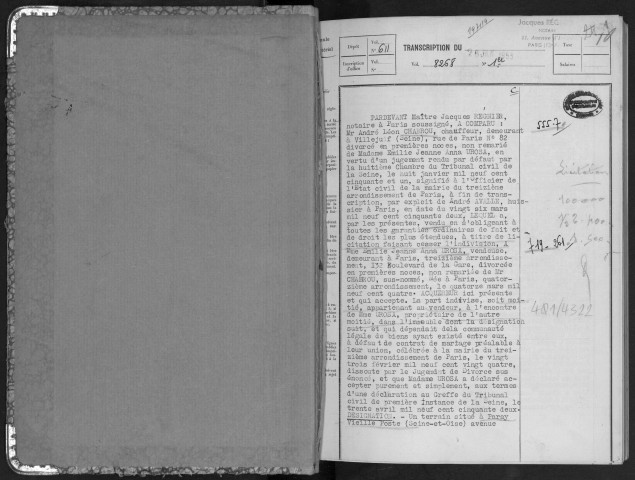 Dépôt
Vol.
N° 611
Inscription d'office
TRANSCRIPTION DU
Vol. 8268 N° 1er
Jacques
PARIS
Taxe
Salaires
PARDEVANT Maître Jacques REGNIER,
notaire à Paris soussigné, A COMPARU :
Mr André Léon CHABROU, chauffeur, demeurant
à Villejuif (Seine), rue de Paris N° 82
divorcé en premières noces, non remarié
de Madame Emilie Jeanne Anna UROSA, en
vertu d'un jugement rendu par défaut par
la huitième Chambre du Tribunal civil de
la Seine, le huit janvier mil neuf cent
cinquante et un, signifié à l'Officier de
l'Etat civil de la mairie du treizième
arrondissement de Paris, à fin de trans-
cription, par exploit de André AVELINE, huis-
sier à Paris, en date du vingt six mars
mil neuf cent cinquante deux, LEQUEL a,
par les présentes, vendu en s'obligeant à
toutes les garanties ordinaires de fait et
de droit les plus étendues, à titre de li-
citation faisant cesser l'indivision, A
Mme Emilie Jeanne Anna UROSA, vendeuse,
demeurant à Paris, treizième arrondisse-
ment, 137 Boulevard de la Gare, divorcée
en premières noces, non remariée de Mr
CHABROU, sus-nommé, Née à Paris, quator-
zième arrondissement, le quatorze mars mil
neuf cent quatre. ACQUEREUR ici présente
et qui accepte. La part indivise, soit moi-
tié, appartenant au vendeur, à l'encontre
de Mme UROSA, propriétaire de l'autre
moitié, dans l'immeuble dont la désignation
suit, et qui dépendait de la communauté
légale de biens ayant existé entre eux,
à défaut de contrat de mariage préalable à
leur union, célébrée à la mairie du trei-
zième arrondissement de Paris, le vingt
trois février mil neuf cent vingt quatre,
dissoute par le Jugement de Divorce sus
énoncé, et que Madame UROSA a déclaré ac-
cepter purement et simplement, aux termes
d'une déclaration au Greffe du Tribunal
civil de première Instance de la Seine, le
trente avril mil neuf cent cinquante deux.
DESIGNATION. - Un terrain situé à Paray
Vieille Poste (Seine-et-Oise) avenue
C
5557
719-361
481/4322